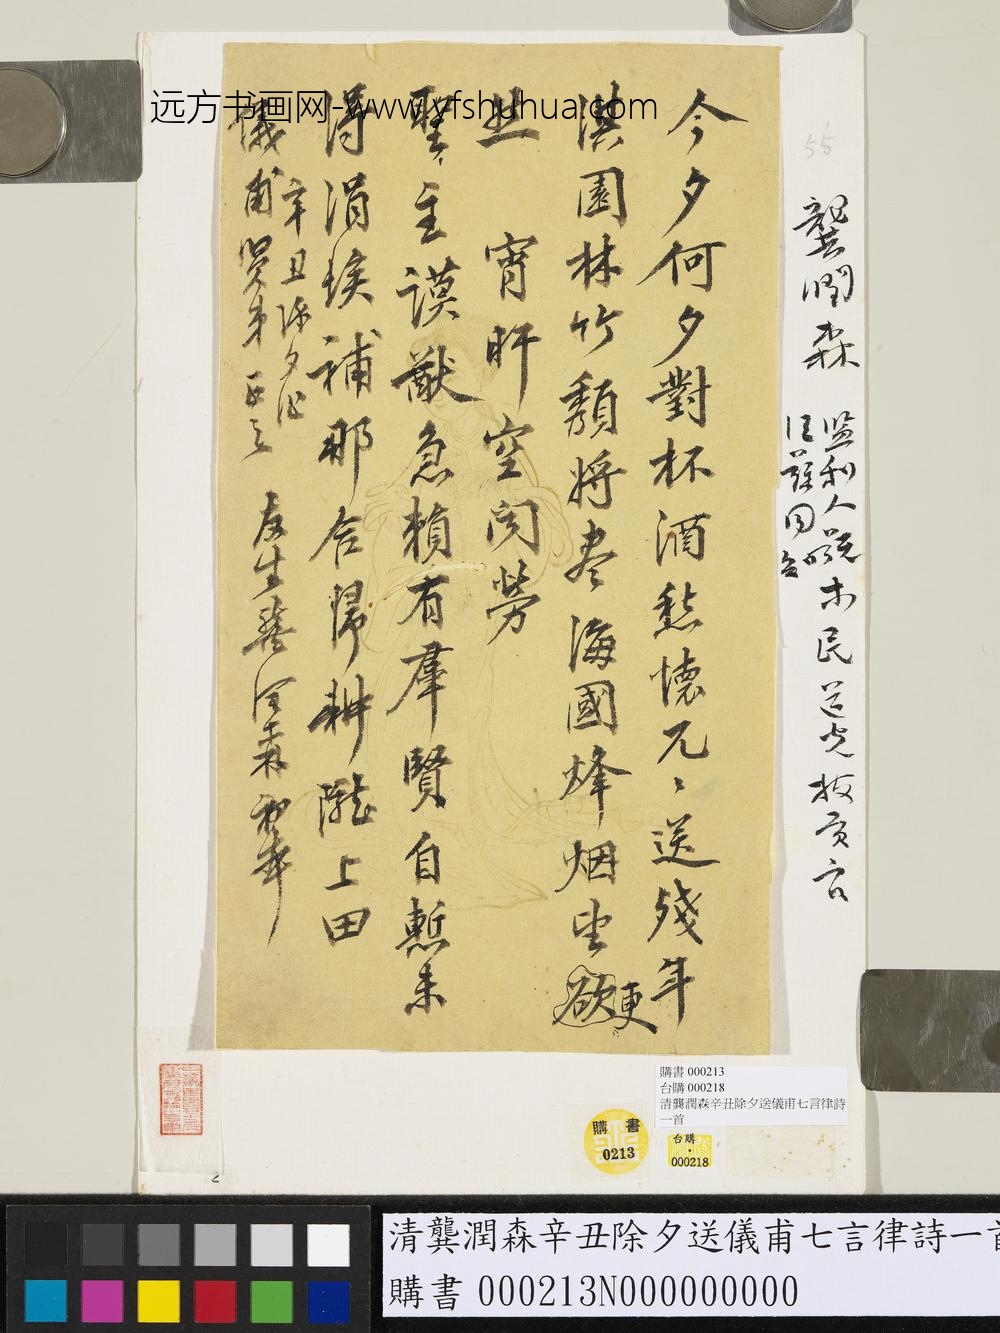 远方书画网-www.yfshuhua.com
今夕何夕對杯酒愁懷兀〻送殘年
淇園林竹頹將盡海國烽烟望欲更
然 宵旰空聞勞
聖主謨猷急賴有羣賢自慙未
得涓埃補那合歸耕隴上田
辛丑除夕作
儀甫賢弟正之 友生龔潤森初葊
55
龔潤森
監利人號木民道光拔貢官
購書 000213
台購 000218
清龔潤森辛丑除夕送儀甫七言律詩
一首
購書
0213
台購
000218
清龔潤森辛丑除夕送儀甫七言律詩一首
購書 000213N000000000